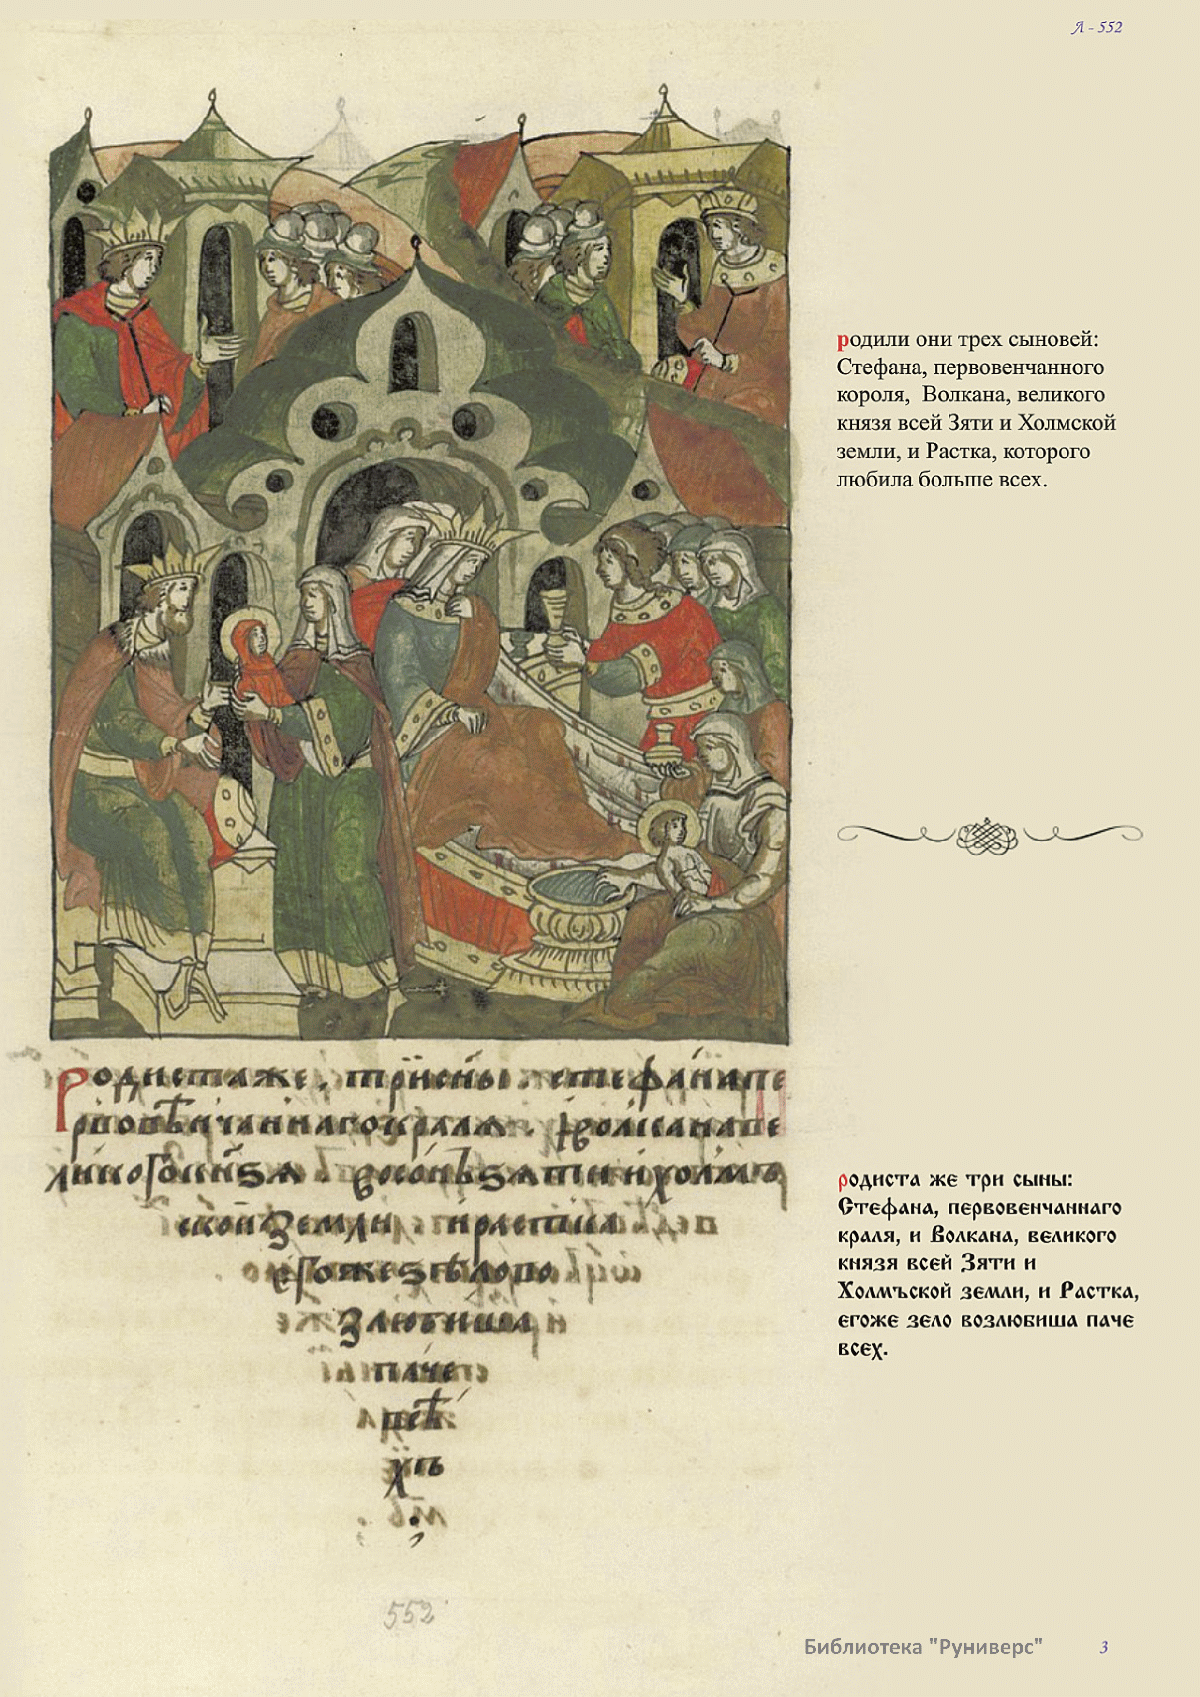 Л - 552
родили они трех сыновей:
Стефана, первовенчанного
короля, Волкана, великого
князя всей Зяти и Холмской
земли, и Растка, которого
любила больше всех.
Родистаже. трисн҃ы. стефанапе
рвовѣнчаннагокралѧ. ꙗволканаве
ликогокнѧ꙳ѕѧ всеꙗ
скойземли ирастка
егожеѕѣловоз
злюбиша
паче
всѣ
хъ
родиста же три сыны:
Стефана, первовенчаннаго
краля, и Волкана, великого
князя всей Зяти и
Холмъской земли, и Растка,
егоже зело возлюбиша паче
всех.
552
Библиотека "Руниверс" 3